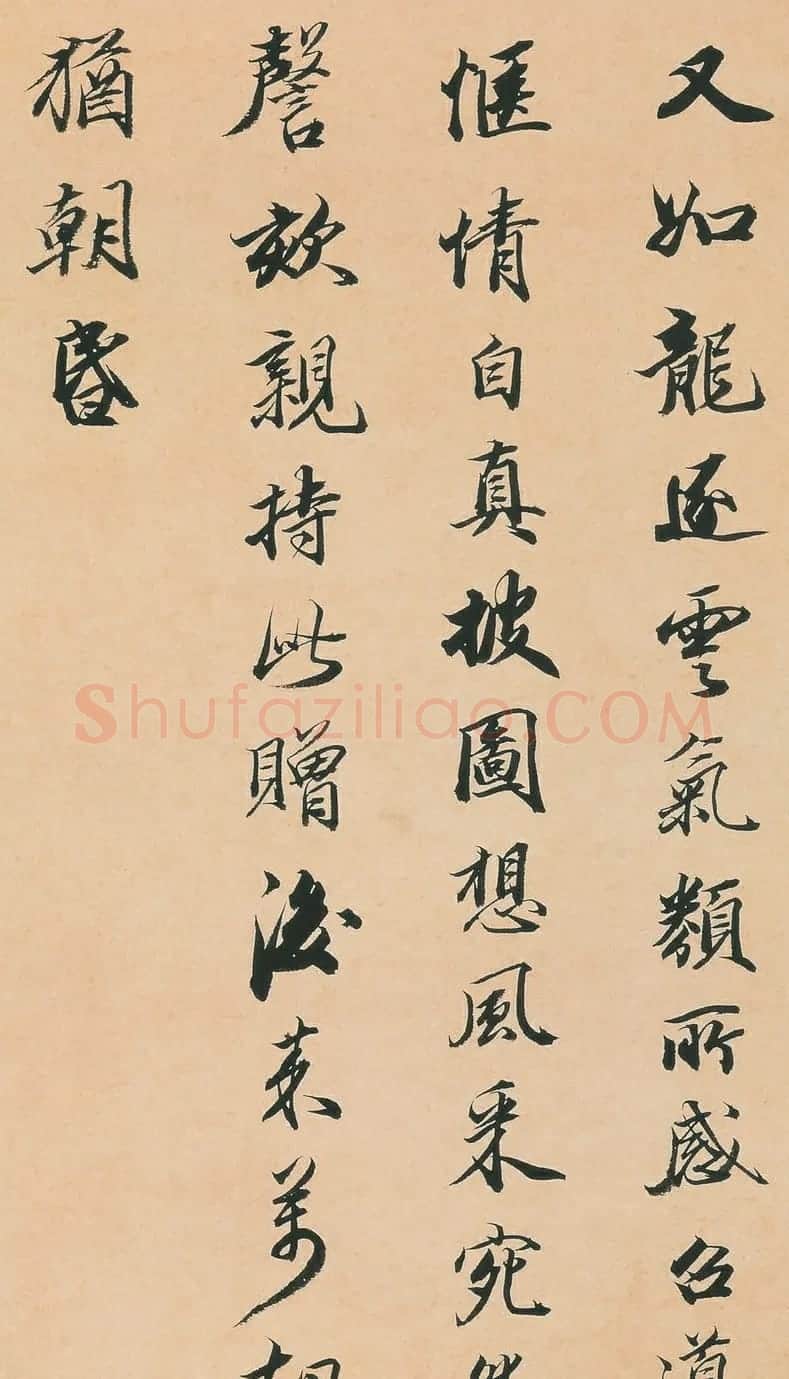 又如龍逐雲氣類所感召道
愜情自真披圖想風采宛然
謦欬親持此贈後來萬
猶朝昏
Shufaziliao.COM